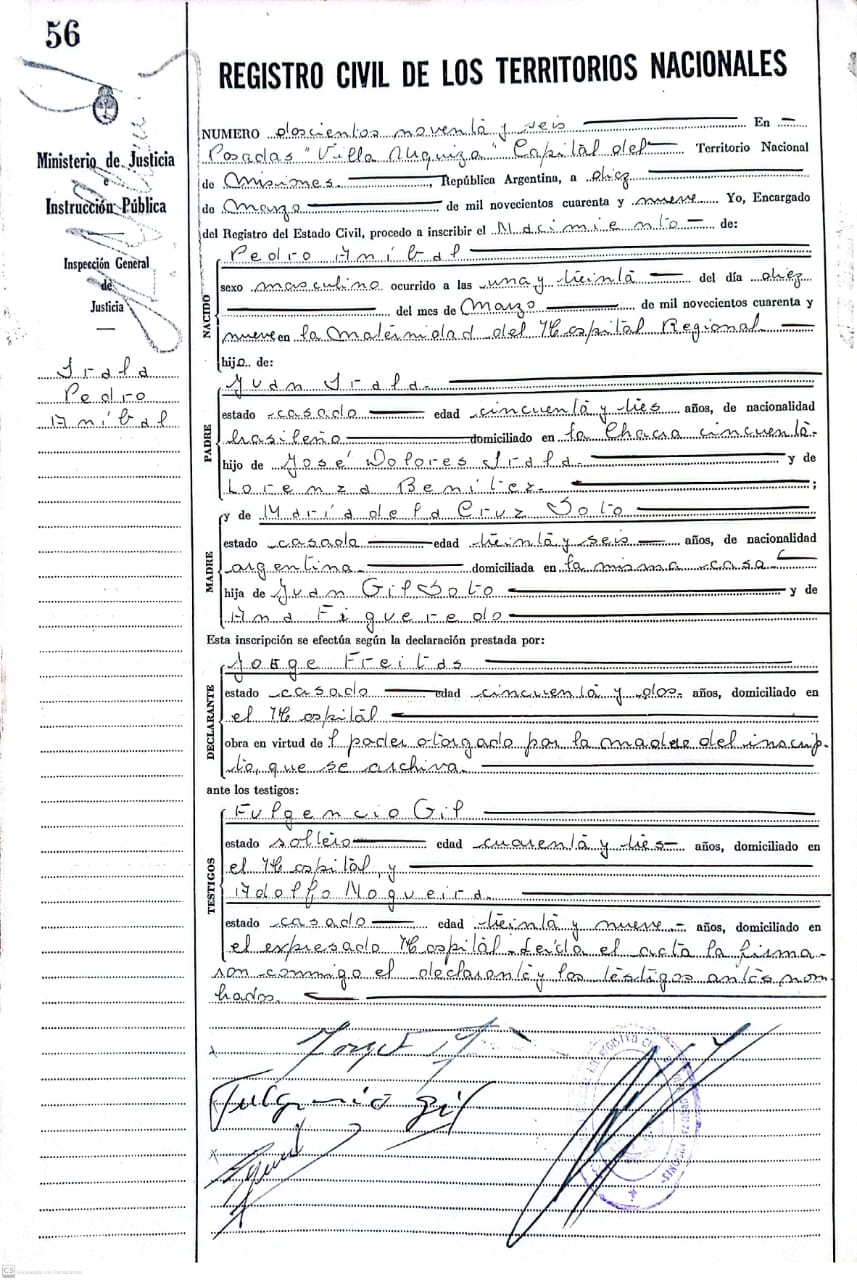 56
Ministerio de Justicia
e
Instrucción Pública
Inspección General
de
Justicia
Irala
Pedro
Aníbal
REGISTRO CIVIL DE LOS TERRITORIOS NACIONALES
NUMERO doscientos noventa y seis En
Posadas "Villa Urquiza" Capital del Territorio Nacional
de Misiones., República Argentina, a diez
de Marzo de mil novecientos cuarenta y nueve Yo, Encargado
del Registro del Estado Civil, procedo a inscribir el Nacimiento de:
NACIDO
Pedro Aníbal
sexo masculino ocurrido a las una y treinta del día diez
del mes de Marzo de mil novecientos cuarenta y
nueve en la maternidad del Hospital Regional
hijo de:
PADRE
Juan Irala.
estado casado edad cincuenta y tres años, de nacionalidad
brasileño domiciliado en la Chacra cincuenta.
hijo de José Dolores Irala. y de
Lorenza Benítez. ;
MADRE
y de María de la Cruz Soto
estado casada edad treinta y seis años, de nacionalidad
argentina. domiciliada en la misma casa
hija de Juan Gil Soto y de
Ana Figueredo
Esta inscripción se efectúa según la declaración prestada por:
DECLARANTE
Jorge Freitas
estado casado edad cincuenta y dos. años, domiciliado en
el Hospital
obra en virtud del poder otorgado por la madre del inscrip-
to, que se archiva.
ante los testigos:
TESTIGOS
Fulgencio Gil
estado soltero edad cuarenta y tres años, domiciliado en
el Hospital, y
Adolfo Nogueira.
estado casado edad treinta y nueve años, domiciliado en
el expresado Hospital. Leída el acta la firma-
ron conmigo el declarante y los testigos antes nom-
brados.
Fulgencio Gil
CS